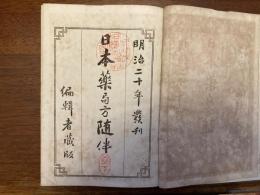 明治二十年叢刊
日本藥局方随伴
編輯者藏版